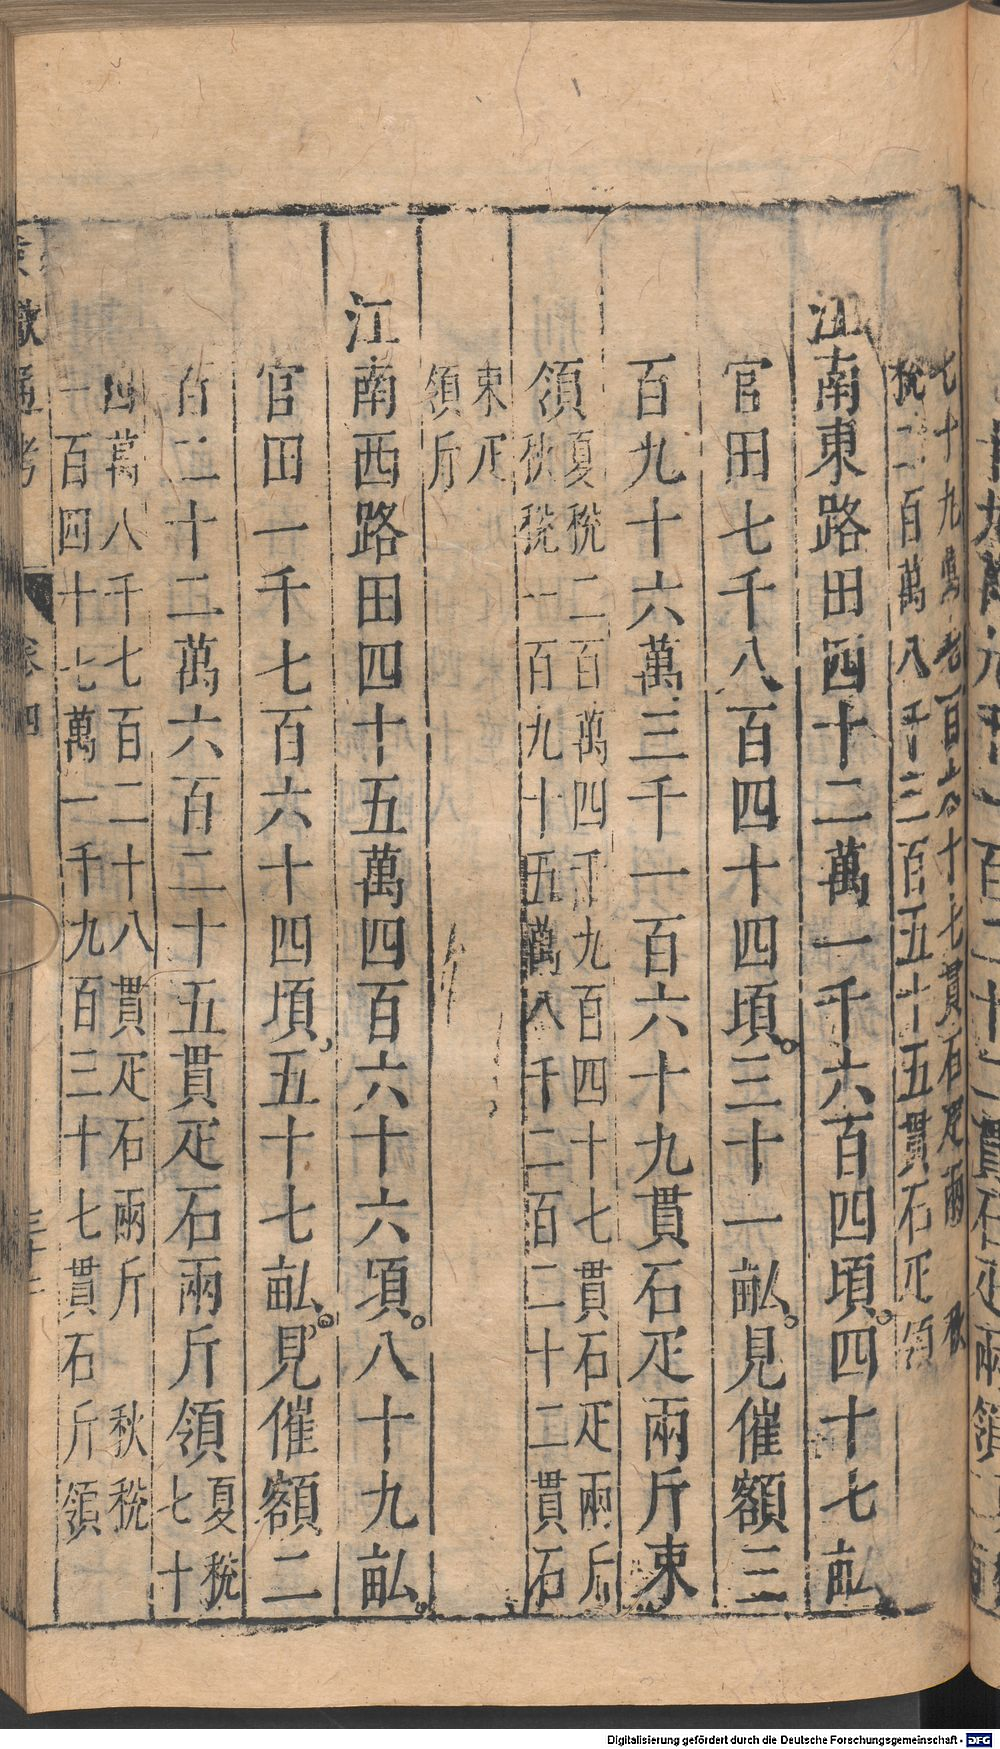 七十九萬七百六十七貫石疋兩　秋
稅二百萬八千三百五十五貫石疋領
江南東路田四十二萬一千六百四頃。四十七畝
官田七千八百四十四頃。三十一畝。見催額三
百九十六萬三千一百六十九貫石疋兩斤束
領
夏稅二百萬四千九百四十七貫石疋兩斤
秋稅一百九十五萬八千二百二十二貫石
束疋
領斤
江南西路田四十五萬四百六十六頃。八十九畝。
官田一千七百六十四頃、五十七畝。見催額二
百二十二萬六百二十五貫疋石兩斤領
夏稅
七十
四萬八千七百二十八貫疋石兩斤　秋稅
一百四十七萬一千九百三十七貫石斤領
獻通考
卷四
Digitalisierung gefördert durch die Deutsche Forschungsgemeinschaft - DFG